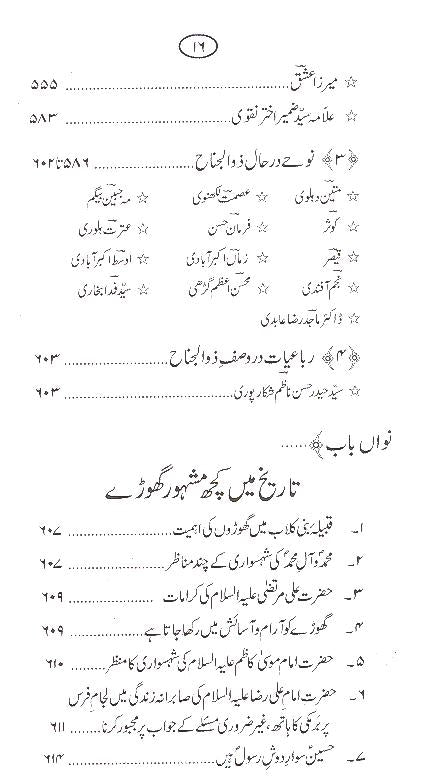 ۱۶
☆ میرزا عشق ........ ۵۵۵
☆ علامہ سید ضمیر اختر نقوی ........ ۵۸۳
﴿۳﴾ نوحے در حال ذوالجناح ........ ۵۸۶ تا ۶۰۲
☆ متین دہلوی ☆ عصمت لکھنوی ☆ مہ جبین بیگم
☆ کوثر ☆ فرمان حسن ☆ عترت ہلوری
☆ قیصر ☆ زماں اکبر آبادی ☆ اوسط اکبر آبادی
☆ نجم آفندی ☆ محسن اعظم گڑھی ☆ سید فدا بخاری
☆ ڈاکٹر ماجد رضا عابدی
﴿۴﴾ رباعیات در وصف ذوالجناح ........ ۶۰۳
☆ سید حیدر حسن ناظم شکارپوری ........ ۶۰۳
نواں باب ﴾ ......
تاریخ میں کچھ مشہور گھوڑے
۱۔ قبیلۂ بنی کلاب میں گھوڑوں کی اہمیت ........ ۶۰۷
۲۔ محمدؐ و آل محمدؐ کی شہسواری کے چند مناظر ........ ۶۰۷
۳۔ حضرت علی مرتضیٰ علیہ السلام کی کرامات ........ ۶۰۹
۴۔ گھوڑے کو آرام و آسائش میں رکھا جاتا ہے ........ ۶۰۹
۵۔ حضرت امام موسیٰ کاظم علیہ السلام کی شہسواری کا منظر ........ ۶۱۰
۶۔ حضرت امام علی رضا علیہ السلام کی صابرانہ زندگی میں لجام فرس
پر برمکی کا ہاتھ، غیر ضروری مسئلے کے جواب پر مجبور کرنا ........ ۶۱۱
۷۔ حسینؑ سوار دوش رسولؐ ہیں ........ ۶۱۴